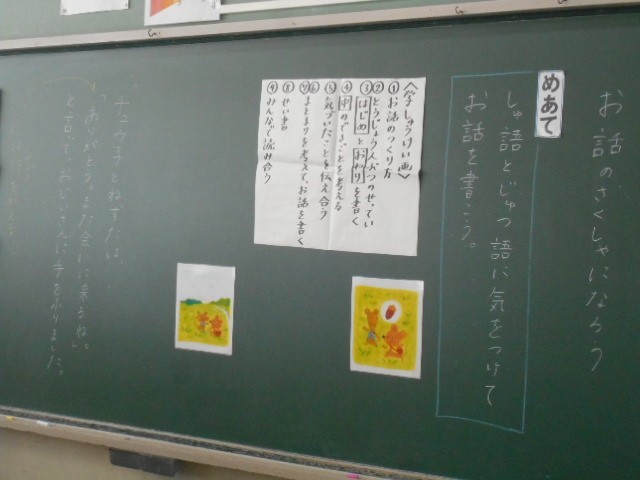 お話のさくしゃになろう
めあて
しゅ語とじゅつ語に気をつけて
お話を書こう。
〈学しゅうけい画〉
①お話のつくり方
②とうじょう人ぶつのせってい
③はじめとおわりを書く
④中のできごとを考える
⑤気づいたことを伝え合う
⑥⑦まとまりを考えて、お話を書く
⑧せい書
⑨みんなで読み合う
チュウ子とねずたは、
「ありがとう。また会いに来るね。」
と言って、